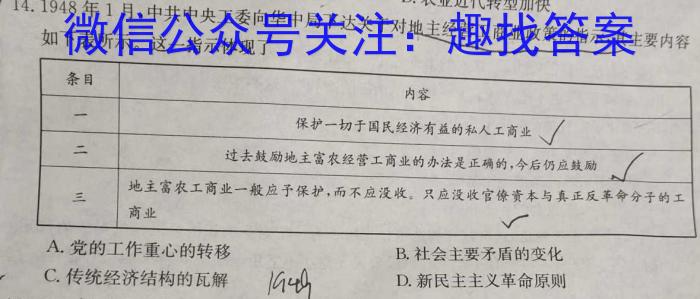 B. 农业近代转型加快
14. 1948年1月,中共中央工委向华中局下达关于对地主经营工商业政策的指示,其主要内容
如下表所示。这一指示体现了
微信公众号关注：趣找答案
条目 内容
一 保护一切于国民经济有益的私人工商业
二 过去鼓励地主富农经营工商业的办法是正确的,今后仍应鼓励
三 地主富农工商业一般应予保护,而不应没收。只应没收官僚资本与真正反革命分子的工
商业
A. 党的工作重心的转移 B. 社会主要矛盾的变化
C. 传统经济结构的瓦解 D. 新民主主义革命原则
1949